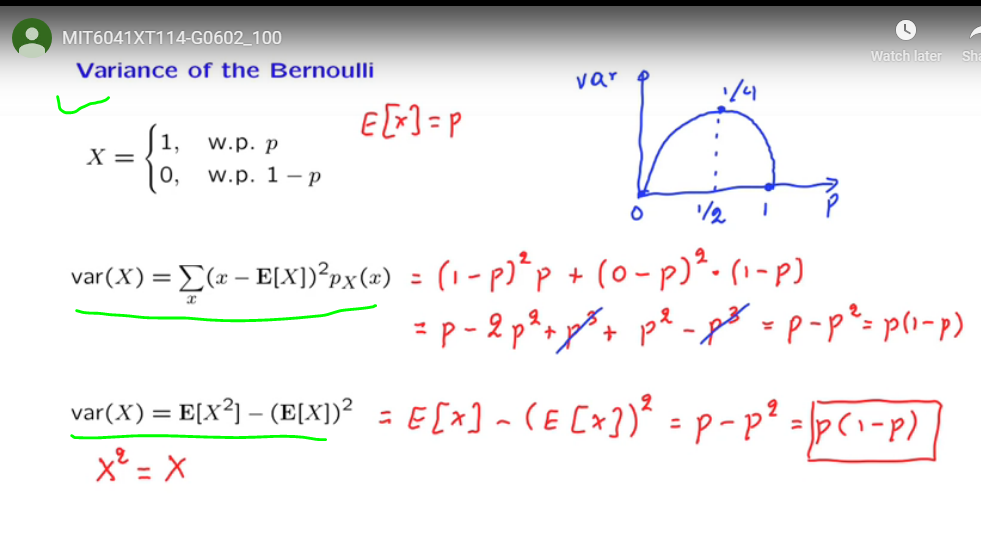 MIT6041XT114-G0602_100
Watch later
Sha
Variance of the Bernoulli
E[x] = p
X = {1, w.p. p
0, w.p. 1 − p
var
1/4
0 1/2 1 p
var(X) = ∑x (x − E[X])²pX(x) = (1-p)²p + (0-p)²·(1-p)
= p - 2p² + p³ + p² - p³ = p - p² = p(1-p)
var(X) = E[X²] − (E[X])² = E[x] - (E[x])² = p - p² = p(1-p)
X² = X